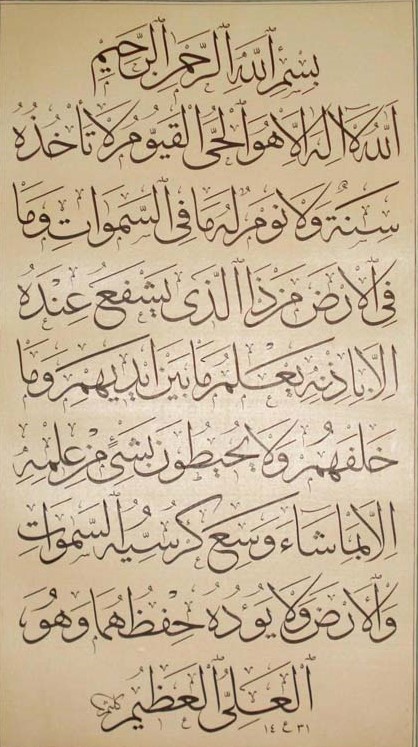 بِسْمِ اللهِ الرَّحْمٰنِ الرَّحِيمِ
اَللهُ لَا اِلٰهَ اِلَّا هُوَ الْحَيُّ الْقَيُّومُ لَا تَأْخُذُهُ
سِنَةٌ وَلَا نَوْمٌ لَهُ مَا فِي السَّمٰوَاتِ وَمَا
فِي الْاَرْضِ مَنْ ذَا الَّذِي يَشْفَعُ عِنْدَهُ
اِلَّا بِاِذْنِهِ يَعْلَمُ مَا بَيْنَ اَيْدِيهِمْ وَمَا
خَلْفَهُمْ وَلَا يُحِيطُونَ بِشَيْءٍ مِنْ عِلْمِهِ
اِلَّا بِمَا شَاءَ وَسِعَ كُرْسِيُّهُ السَّمٰوَاتِ
وَالْاَرْضَ وَلَا يَؤُدُهُ حِفْظُهُمَا وَهُوَ
الْعَلِيُّ الْعَظِيمُ
١٤ ٤ ٣١